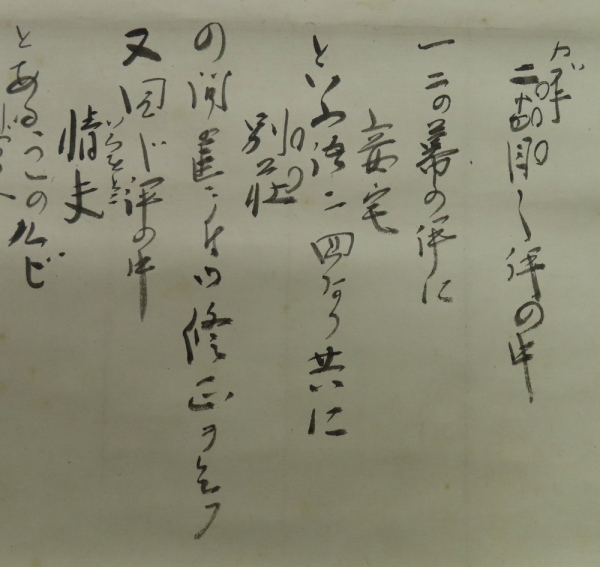 二番目の評の中
一二の幕の評に
妾宅
といふ語二四あり共に
別荘
の間違ニ付御修正ヲ乞フ
又同じ評の中
情夫
とある
のルビ